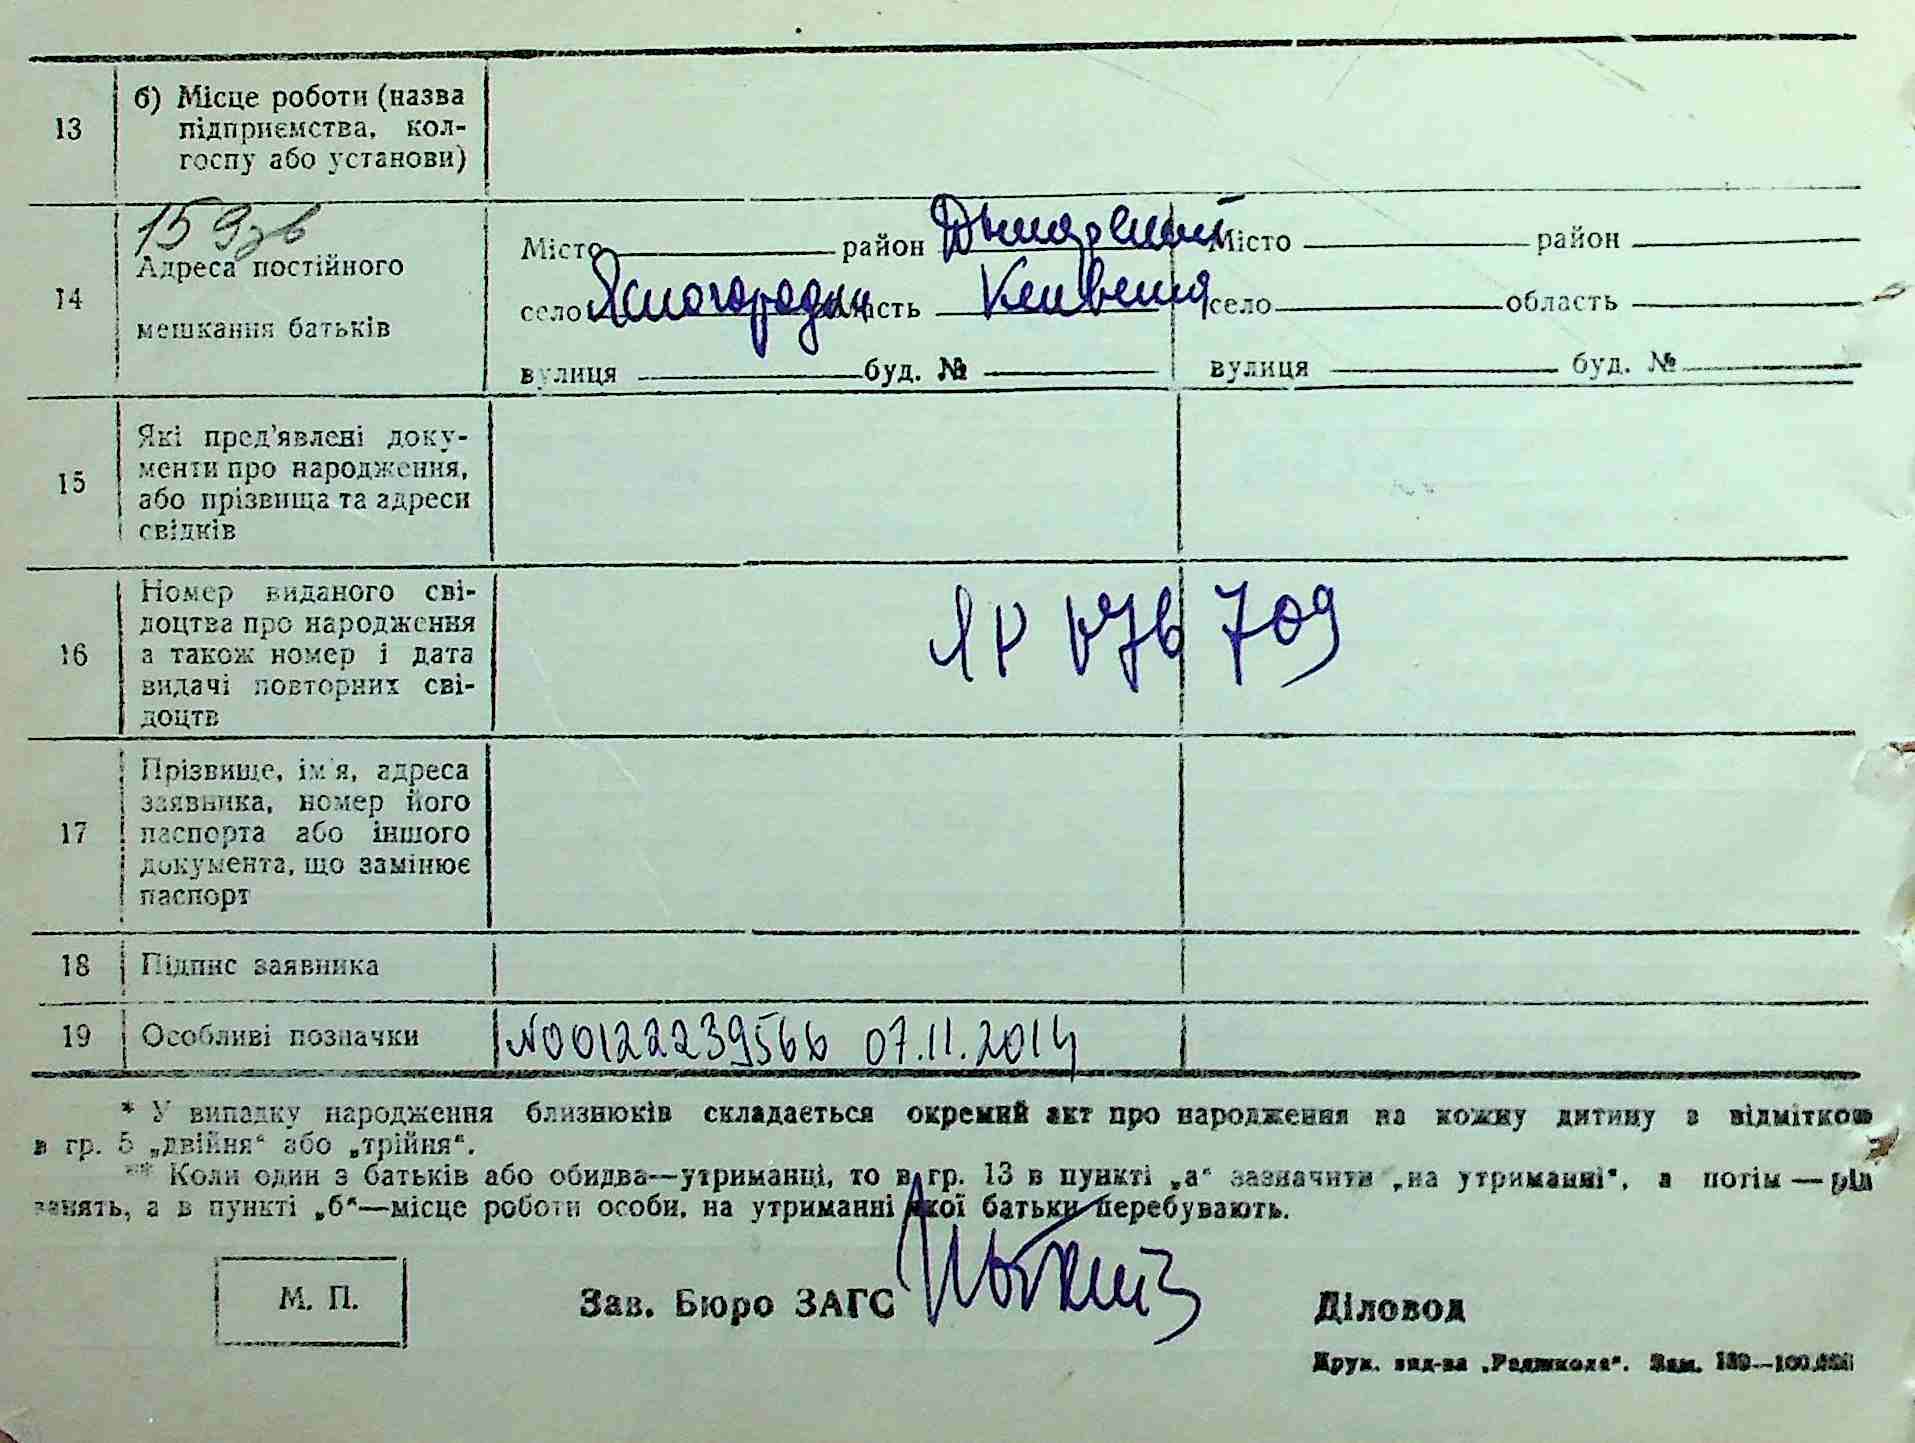 13 б) Місце роботи (назва
підприємства, кол-
госпу або установи)
159зв
Місто район Дымерский Місто район
14 Адреса постійного
село Ясногородка область Киевская село область
мешкання батьків
вулиця буд. № вулиця буд. №
15 Які пред'явлені доку-
менти про народження,
або прізвища та адреси
свідків
16 Номер виданого сві-
доцтва про народження
а також номер і дата
видачі повторних сві-
доцтв
076 709
17 Прізвище, ім'я, адреса
заявника, номер його
паспорта або іншого
документа, що замінює
паспорт
18 Підпис заявника
19 Особливі позначки N00122239566 07.11.2014
* У випадку народження близнюків складається окремий акт про народження на кожну дитину з відміткою
в гр. 5 „двійня“ або „трійня“.
** Коли один з батьків або обидва—утриманці, то в гр. 13 в пункті „а“ зазначити „на утриманні“, а потім — рід
занять, а в пункті „б“—місце роботи особи, на утриманні якої батьки перебувають.
М. П. Зав. Бюро ЗАГС Діловод
Друк. вид-ва „Радшкола“. Зам.